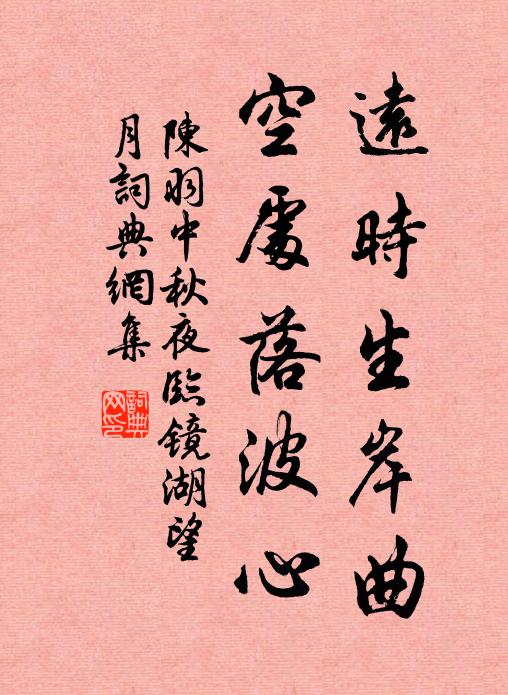 遠時生岸曲
空處落波心
陳羽中秋夜臨鏡湖望
月詞典網集
詞典
网印